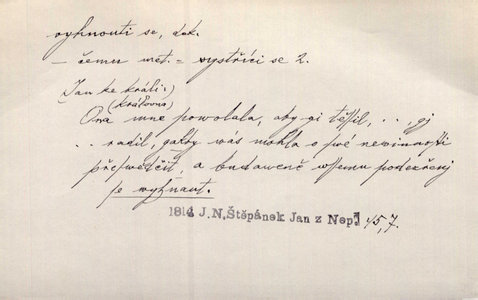 vyhnouti se, dok.
— čemu met. = vystříci se 2.
Jan ke králi:)
(královna)
Ona mne powolala, abych gi těssil, . . , gj
. . radil, gakby wás mohla o swé newinnosti
přeswědčit, a budaucně wssemu podezřenj
se wyhnaut.
1814 J.N.Štěpánek Jan z Nep. 45,7.